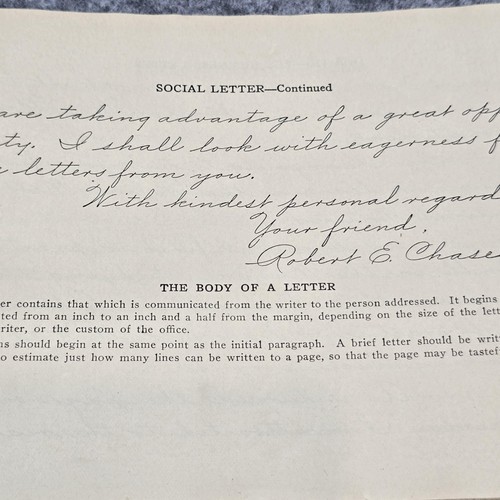 SOCIAL LETTER—Continued
are taking advantage of a great opp
ty. I shall look with eagerness f
letters from you.
With kindest personal regard
Your friend,
Robert E. Chase
THE BODY OF A LETTER
er contains that which is communicated from the writer to the person addressed. It begins
ted from an inch to an inch and a half from the margin, depending on the size of the lett
riter, or the custom of the office.
ns should begin at the same point as the initial paragraph. A brief letter should be writ
o estimate just how many lines can be written to a page, so that the page may be tastef